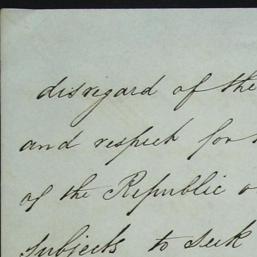 disregard of the
and respect for
of the Republic
subjects to seek